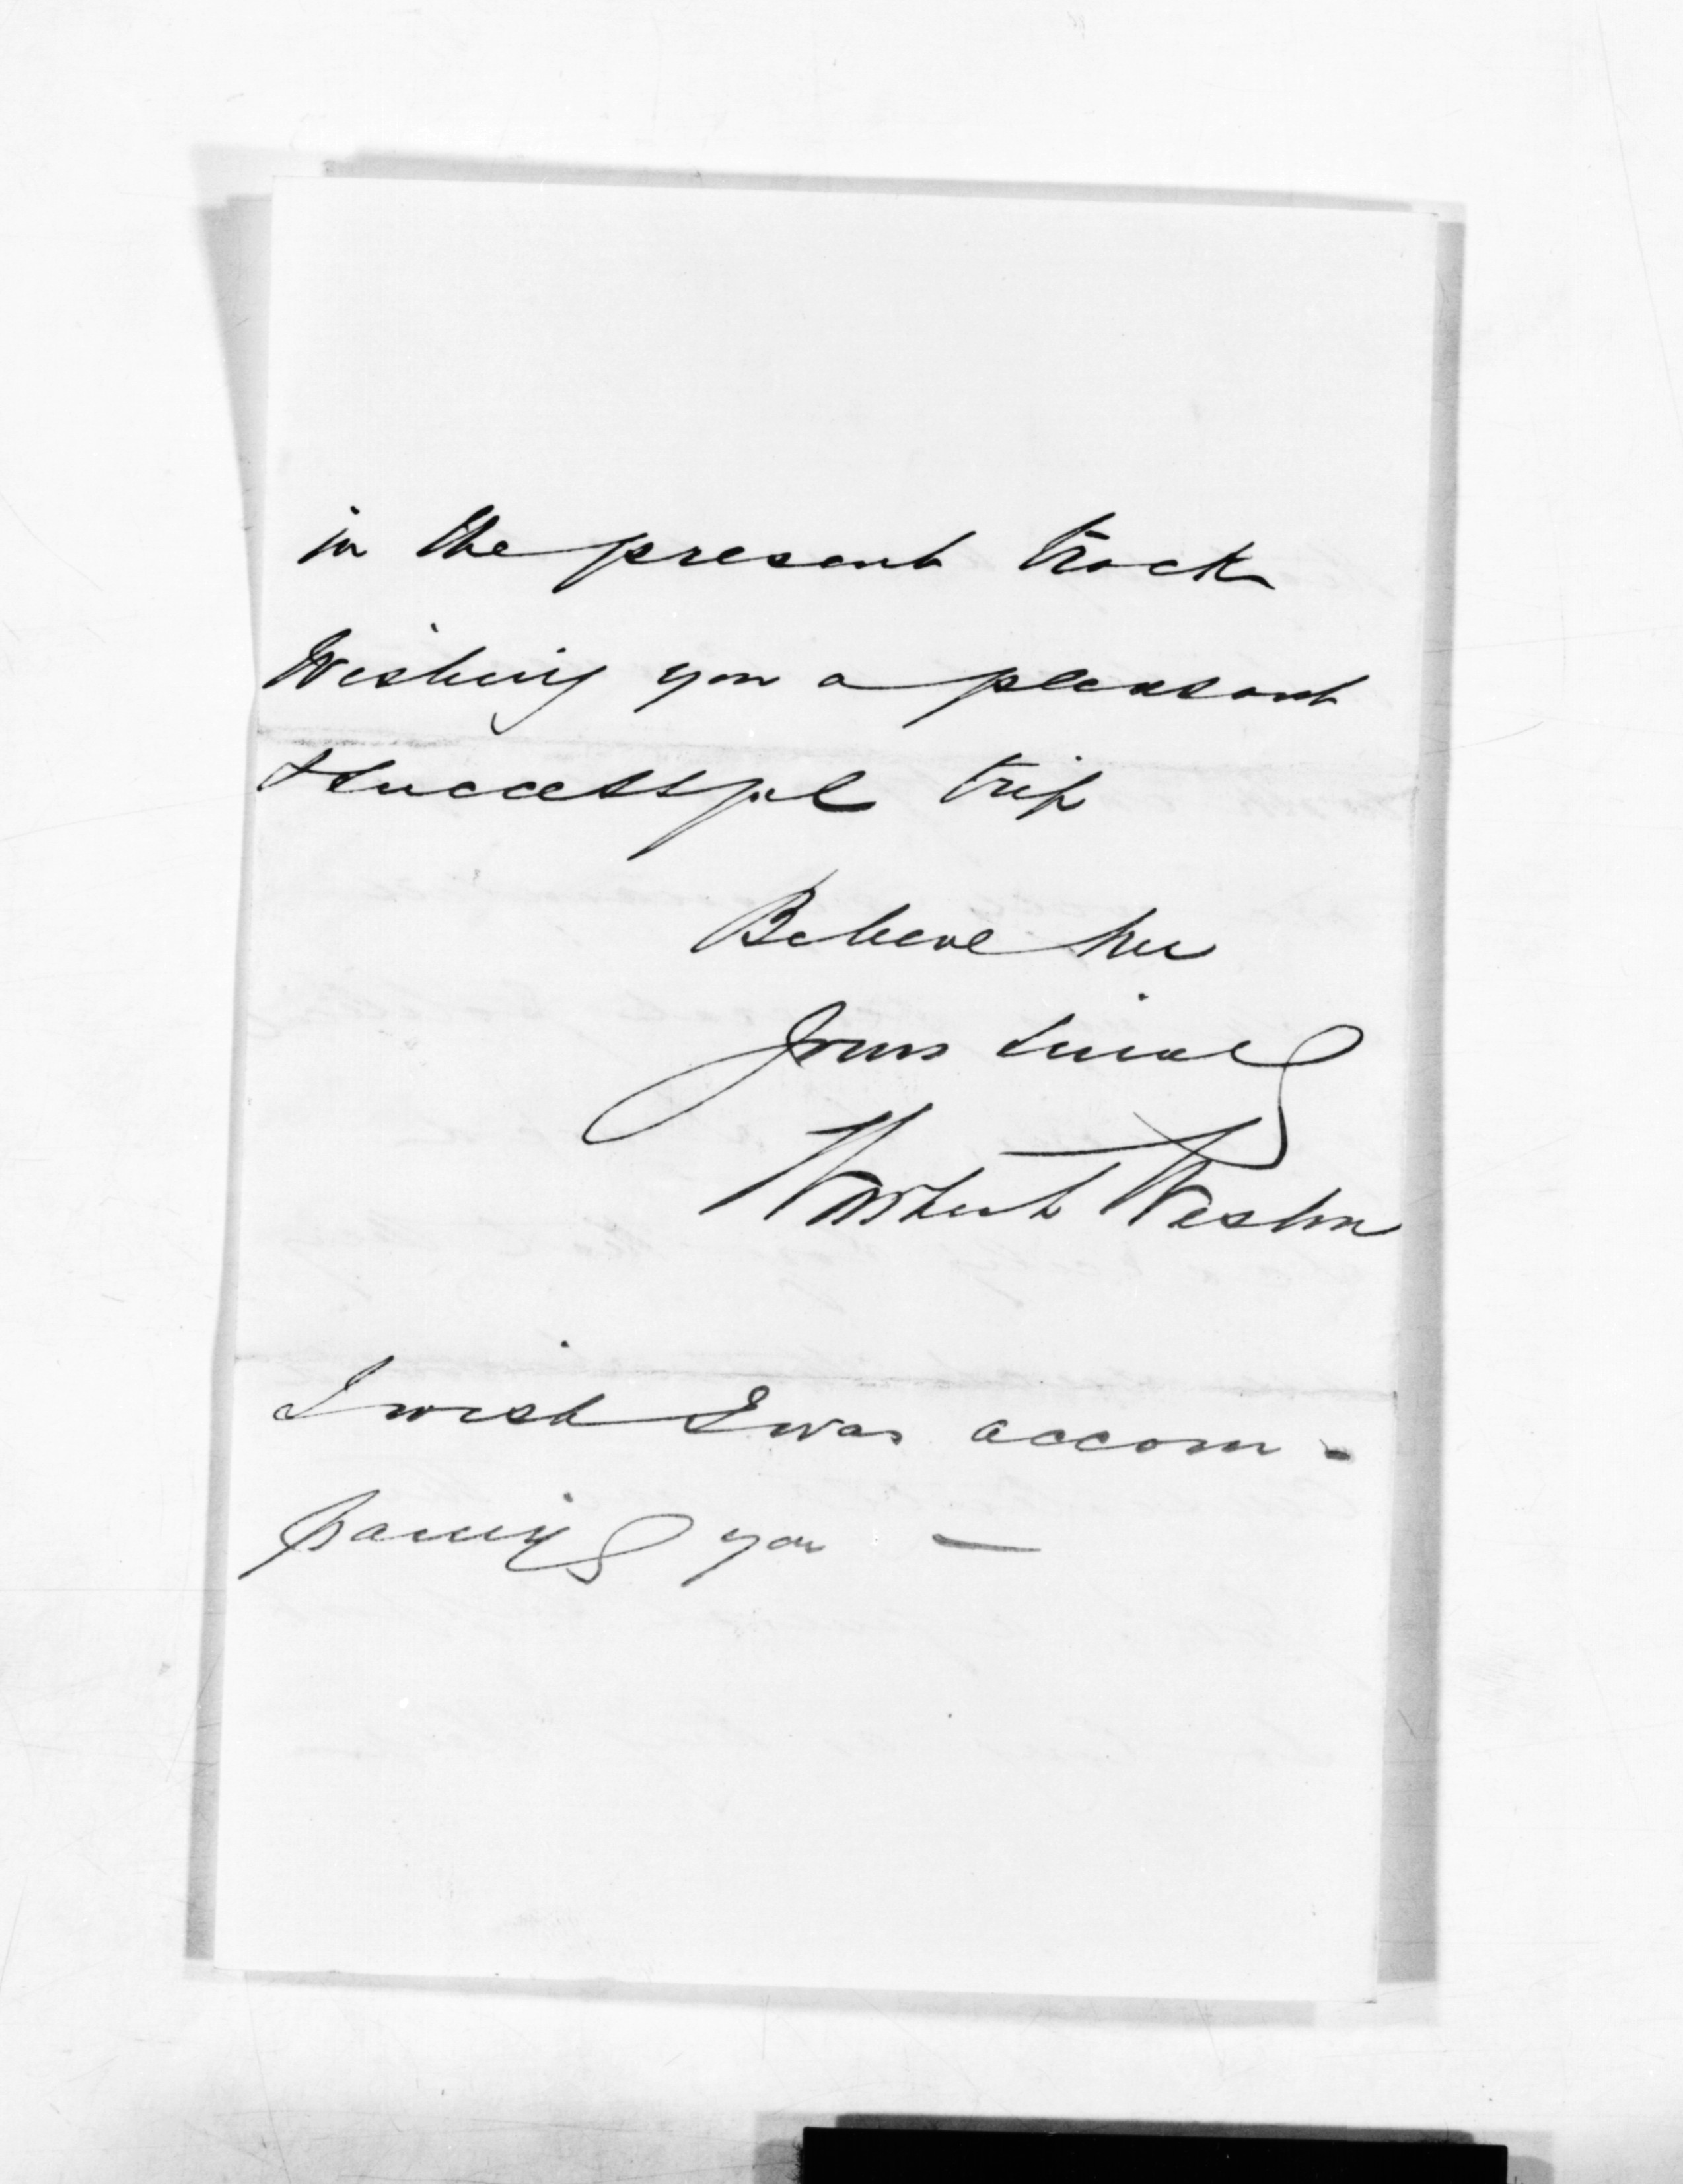 in the present track
Wishing you a pleasant
& successful trip
Believe me
Yours sincerely
Weston
I wish I was accom-
panying you —